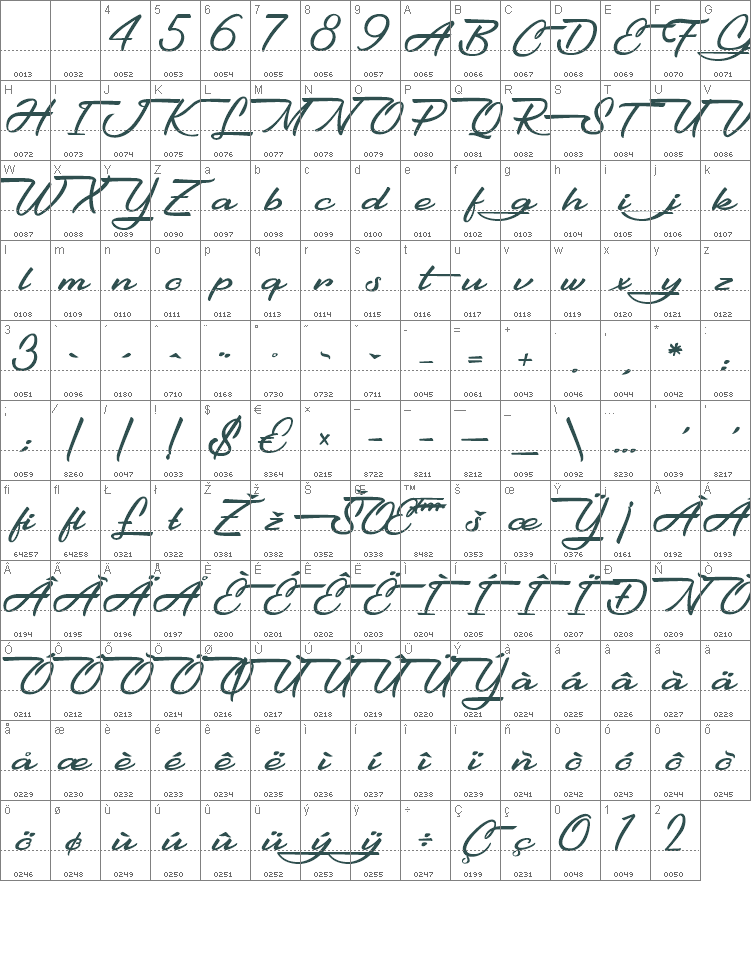 4 5 6 7 8 9 A B C D E F G
4 5 6 7 8 9 A B C D E F G
0013 0032 0052 0053 0054 0055 0056 0057 0065 0066 0067 0068 0069 0070 0071
H I J K L M N O P Q R S T U V
H I J K L M N O P Q R S T U V
0072 0073 0074 0075 0076 0077 0078 0079 0080 0081 0082 0083 0084 0085 0086
W X Y Z a b c d e f g h i j k
W X Y Z a b c d e f g h i j k
0087 0088 0089 0090 0097 0098 0099 0100 0101 0102 0103 0104 0105 0106 0107
l m n o p q r s t u v w x y z
l m n o p q r s t u v w x y z
0108 0109 0110 0111 0112 0113 0114 0115 0116 0117 0118 0119 0120 0121 0122
3 ` ´ ˆ ¨ ˚ ˜ ˇ - = + . , * :
3 ` ´ ˆ ¨ ˚ ˜ ˇ - = + . , * :
0051 0096 0180 0710 0168 0730 0732 0711 0045 0061 0043 0046 0044 0042 0058
; ⁄ / ! $ € × − – — _ \ … ' ’
; ⁄ / ! $ € × − – — _ \ … ' ’
0059 8260 0047 0033 0036 8364 0215 8722 8211 8212 0095 0092 8230 0039 8217
fi fl Ł ł Ž ž Š Œ ™ š œ Ÿ ¡ À Á
fi fl Ł ł Ž ž Š Œ ™ š œ Ÿ ¡ À Á
64257 64258 0321 0322 0381 0382 0352 0338 8482 0353 0339 0376 0161 0192 0193
Â Ã Ä Å È É Ê Ë Ì Í Î Ï Ð Ñ Ò
Â Ã Ä Å È É Ê Ë Ì Í Î Ï Ð Ñ Ò
0194 0195 0196 0197 0200 0201 0202 0203 0204 0205 0206 0207 0208 0209 0210
Ó Ô Õ Ö Ø Ù Ú Û Ü Ý à á â ã ä
Ó Ô Õ Ö Ø Ù Ú Û Ü Ý à á â ã ä
0211 0212 0213 0214 0216 0217 0218 0219 0220 0221 0224 0225 0226 0227 0228
å æ è é ê ë ì í î ï ñ ò ó ô õ
å æ è é ê ë ì í î ï ñ ò ó ô õ
0229 0230 0232 0233 0234 0235 0236 0237 0238 0239 0241 0242 0243 0244 0245
ö ø ù ú û ü ý ÿ ÷ Ç ç 0 1 2
ö ø ù ú û ü ý ÿ ÷ Ç ç 0 1 2
0246 0248 0249 0250 0251 0252 0253 0255 0247 0199 0231 0048 0049 0050